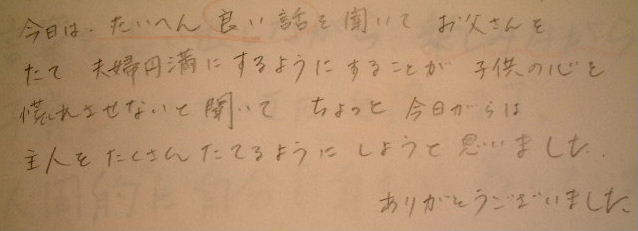 今日は、たいへん良い話を聞いてお父さんを
たて夫婦円満にするようにすることが子供の心を
れさせないと聞いてちょっと今日からは
主人をたくさんたてるようにしようと思いました。
ありがとうございました。